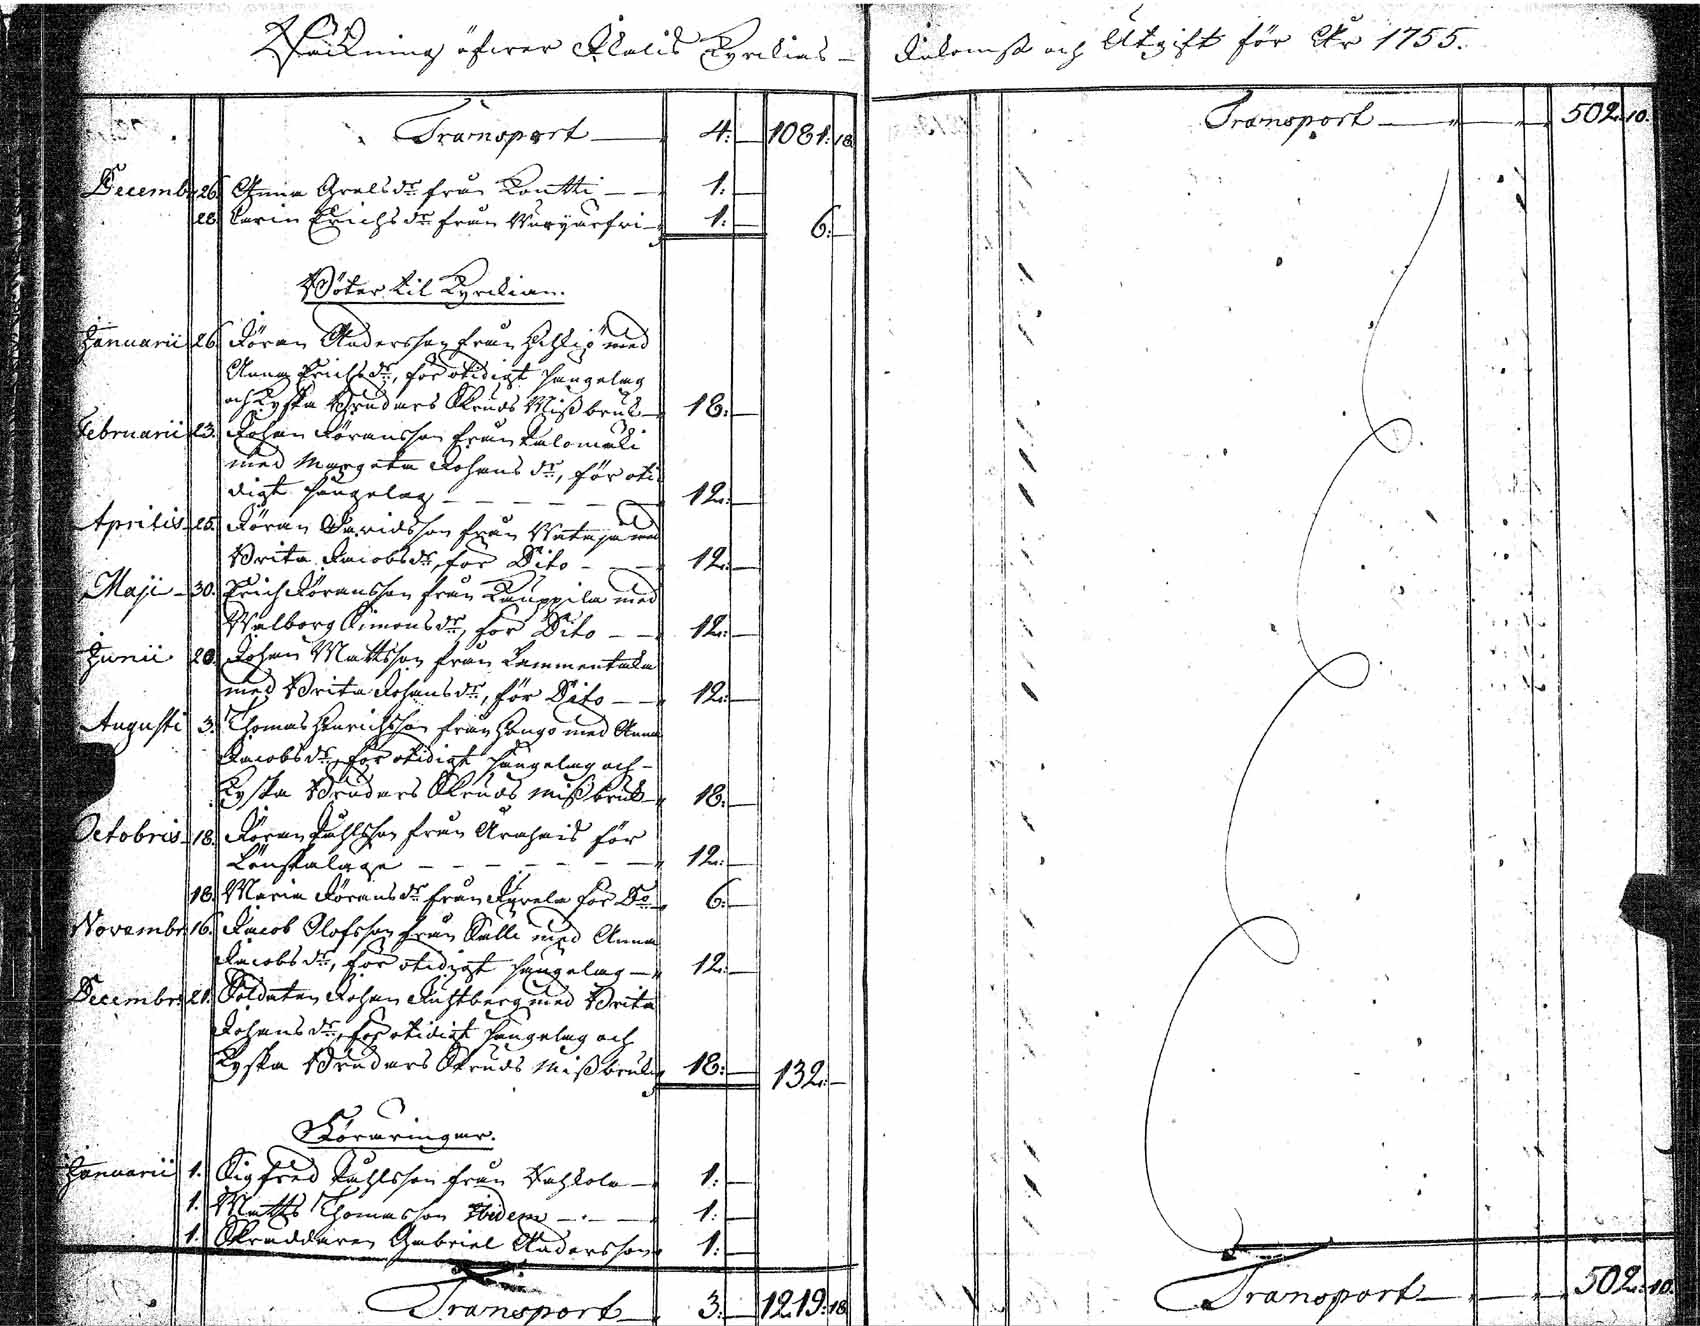 Räkning öfwer Ekalis Kyrckias – Inkomst och Utgift för År 1755.
Transport — 4: — 1081: 18
Decemb. 26. Anna Axelsdr från Kontti — — 1: —
28. Carin Erichsdr från — 1: — 6: —
Böter til Kyrckian.
Januarii 26. Jöran Andersson från med
Anna Erichsdr, för otidigt sängelag
och Kyska Brudars Skruds Missbruk — 18: —
Februarii 23. Johan Jöransson från
med Margeta Johansdr, för oti-
digt sängelag — — — — 12: —
Aprilis 25. Jöran Davidsson från med
Brita Jacobsdr, för Dito — — 12: —
Maji — 30. Erich Jöransson från Kauppila med
Walborg Simonsdr, för Dito — — 12: —
Junii 20. Johan Mattsson från Lammentaka
med Brita Johansdr, för Dito — — 12: —
Augusti 3. Thomas Henrichsson från Hongo med Anna
Jacobsdr, för otidigt sängelag och
Kyska Brudars Skruds missbruk — 18: —
Octobris 18. Jöran Påhlsson från för
Lönskalage — — — — — 12: —
18. Maria Jöransdr från för Do — 6: —
Novembr. 16. Jacob Olofsson från Sälli med Anna
Jacobsdr, för otidigt sängelag — 12: —
Decembr. 21. Soldaten Johan med Brita
Johansdr, för otidigt sängelag och
Kyska Brudars Skruds missbruk 18: — 132: —
Föräringar.
Januarii 1. Sigfred Påhlsson från — 1: —
1. Matts Thomasson Ibidem — — 1: —
1. Skräddaren Gabriel Andersson 1: —
Transport — 3: — 1219: 18
Transport — 502: 10.
Transport — 502: 10.